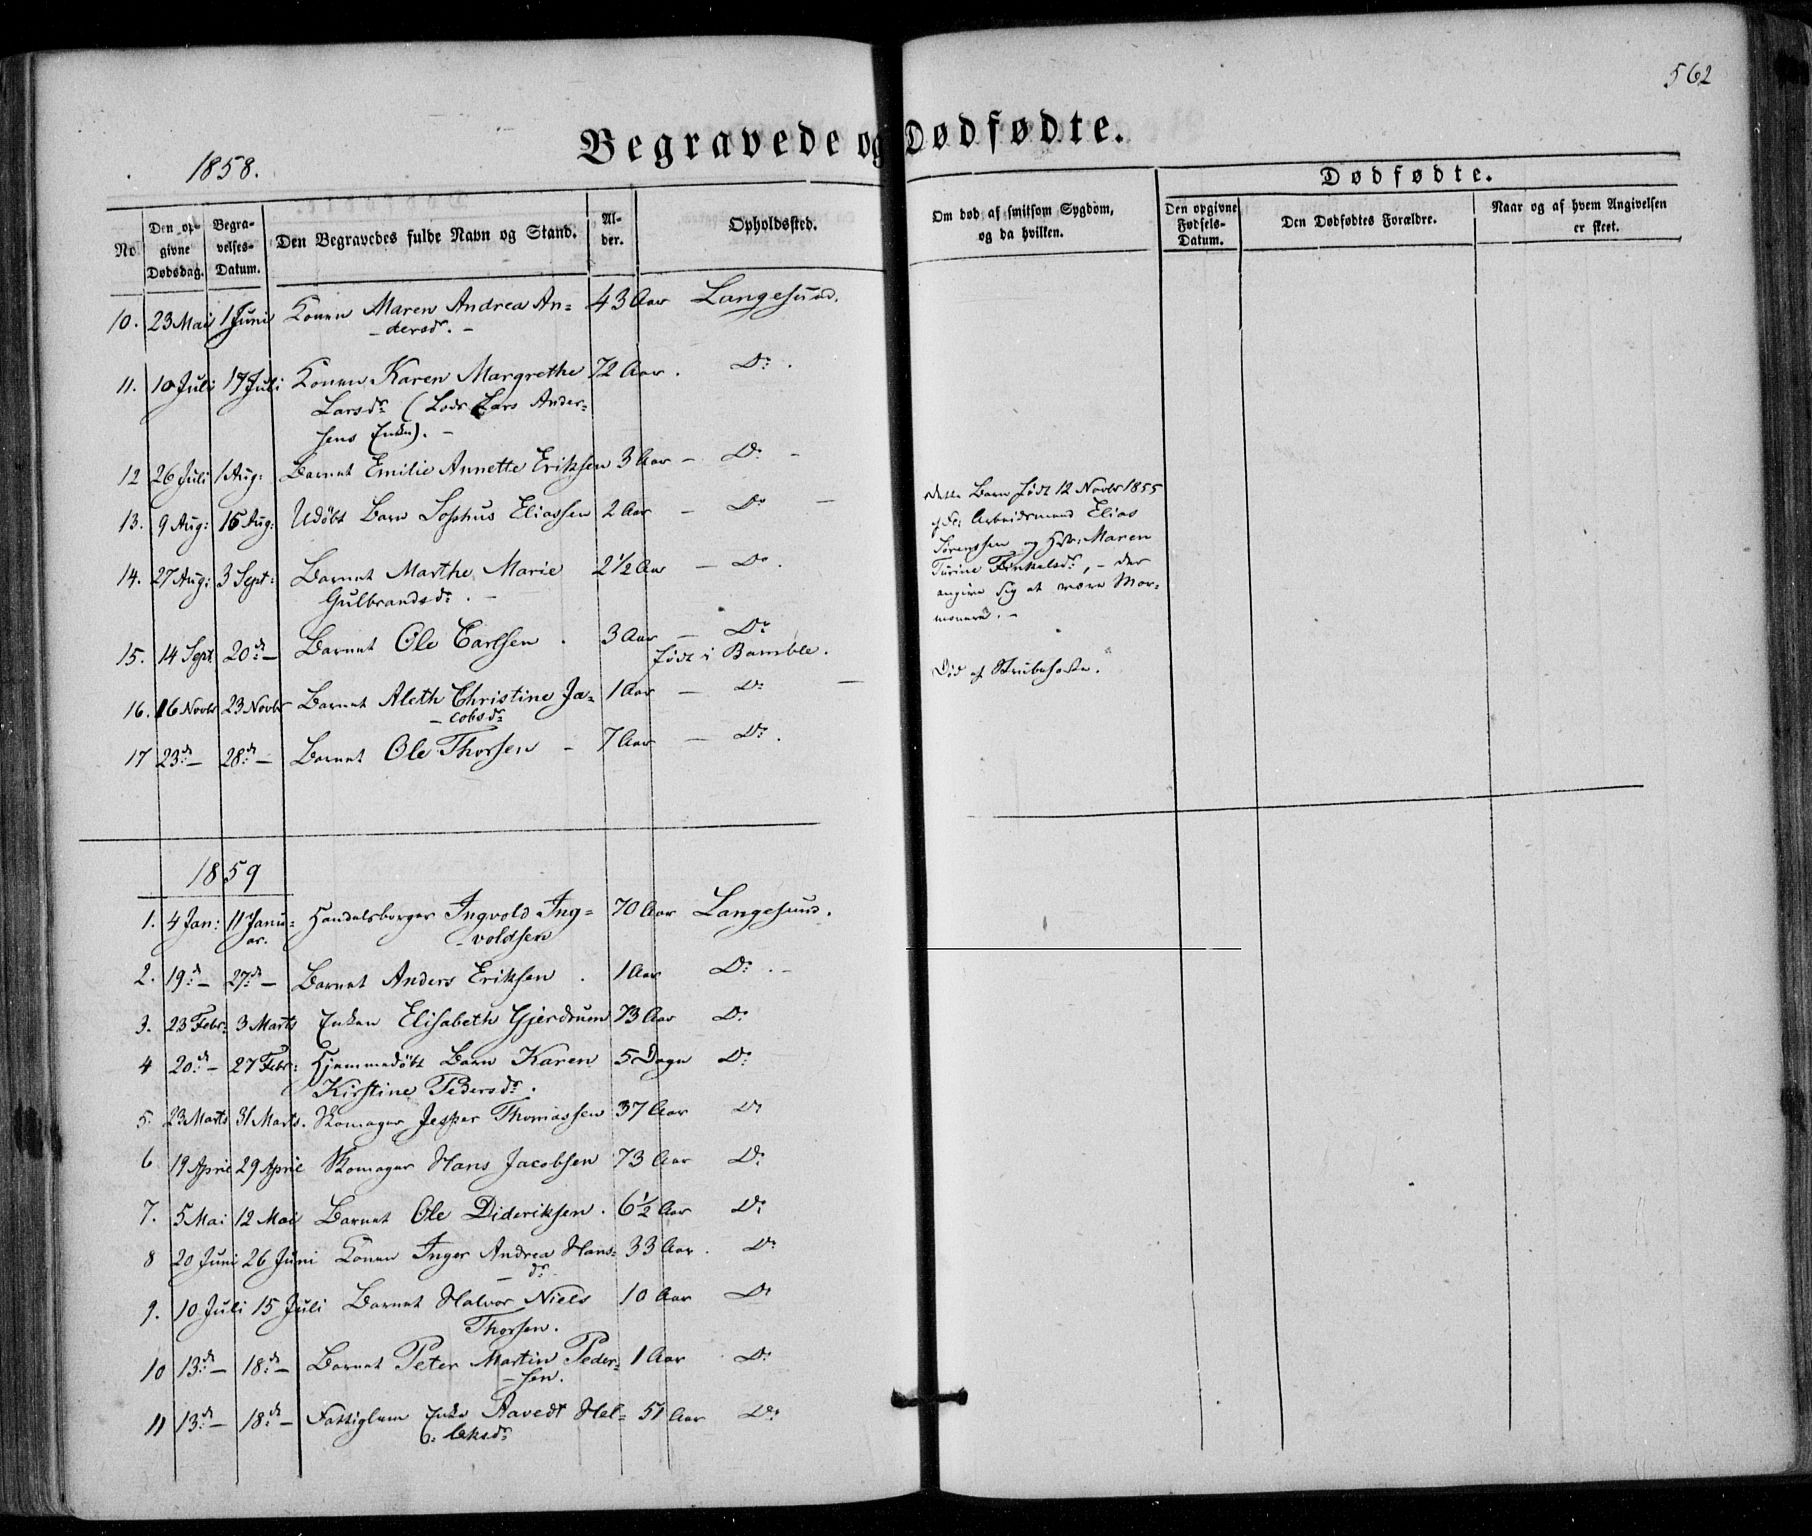 562
Begravede og Dødfødte.
1858.
Dødfødte.
No. Den opgivne Dødsdag. Begravelses-Datum. Den Begravedes fulde Navn og Stand. Alder. Opholdssted. Om død af smitsom Sygdom, og da hvilken. Den opgivne Fødsels-Datum. Den Dødfødtes Forældre. Naar og af hvem Angivelsen er skeet.
10. 23 Mai 1 Juni Konen Maren Andrea An= 43 Aar Langesund.
- dersdr. -
11. 10 Juli 17 Juli Konen Karen Margrethe 72 Aar. Do.
Larsdr (Lods Lars Ander-
sens Enke). -
12 26 Juli 1 Aug: Barnet Emilie Annette Eriksen 3 Aar - Do -
13. 9 Aug: 16 Aug: Udøbt Barn Sophus Eliassen 2 Aar - Do -
Dette Barn født 12 Novbr 1855
af F: Arbeidsmand Elias
Sørenssen og Hstr: Maren
Turine Terkelsdr, - der
angive sig at være Mor-
monere. -
14. 27 Aug: 3 Sept: Barnet Marthe Marie 2½ Aar - Do.
Gulbrandsdr. -
15. 14 Sept 20de - Barnet Ole Carlsen. 3 Aar - Do
født i Bamble.
Død af Strubehoste.
16. 16 Novbr 23 Novbr Barnet Aleth Christine Ja- 1 Aar - Do -
- cobsdr
17 23de - 28de - Barnet Ole Thorsen - 7 Aar - Do.
1859
1. 4 Jan: 11 Janu- Handelsborger Ingvold Ing= 70 Aar Langesund.
ar. - voldsen
2. 19de - 27de - Barnet Anders Eriksen. 1 Aar Do. -
3. 23 Febr: 3 Marts Enken Elisabeth Gjerdrum 73 Aar Do
4 20de - 27 Febr: Hjemmedøbt Barn Karen 5 Dage Do
Kirstine Pedersdr.
5. 23 Marts 31 Marts. Skomager Jesper Thomassen 37 Aar Do
6 19 April 29 April Skomager Hans Jacobsen 73 Aar Do
7. 5 Mai 12 Mai Barnet Ole Dideriksen. 6½ Aar Do
8 20 Juni 26 Juni Konen Inger Andrea Hans- 33 Aar. Do
- dr.
9. 10 Juli 15 Juli Barnet Halvor Niels 10 Aar Do
Thorsen.
10 13de - 18de - Barnet Peter Martin Peder- 1 Aar Do
- sen.
11 13de - 18de - Fattiglem Enke Aavedt Hel- 57 Aar Do
leksdr